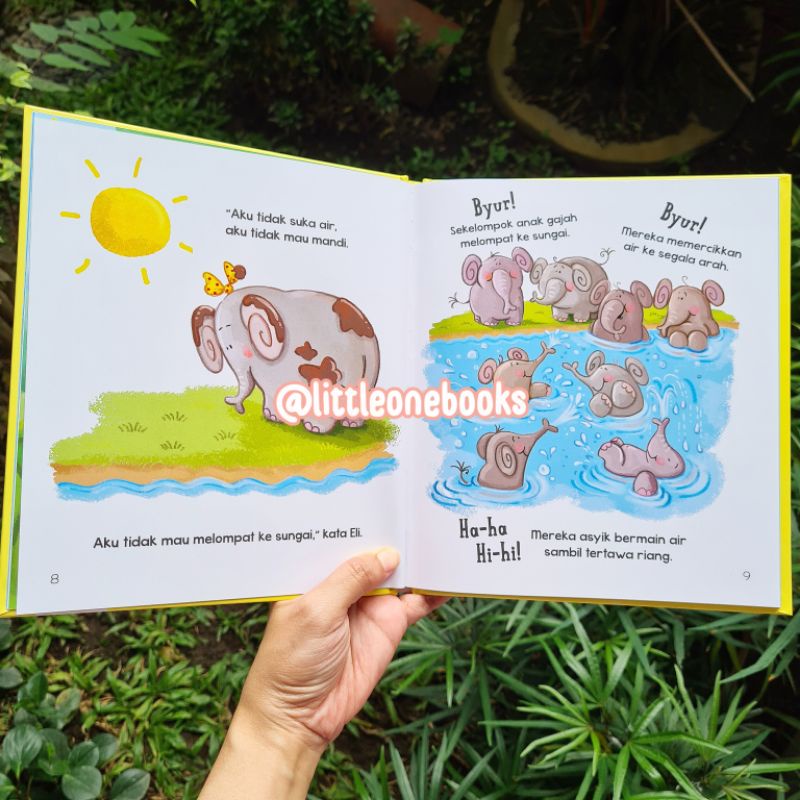 "Aku tidak suka air,
aku tidak mau mandi.
Aku tidak mau melompat ke sungai," kata Eli.
8
Byur!
Sekelompok anak gajah
melompat ke sungai.
Byur!
Mereka memercikkan
air ke segala arah.
Ha-ha
Hi-hi!
Mereka asyik bermain air
sambil tertawa riang.
9
@littleonebooks